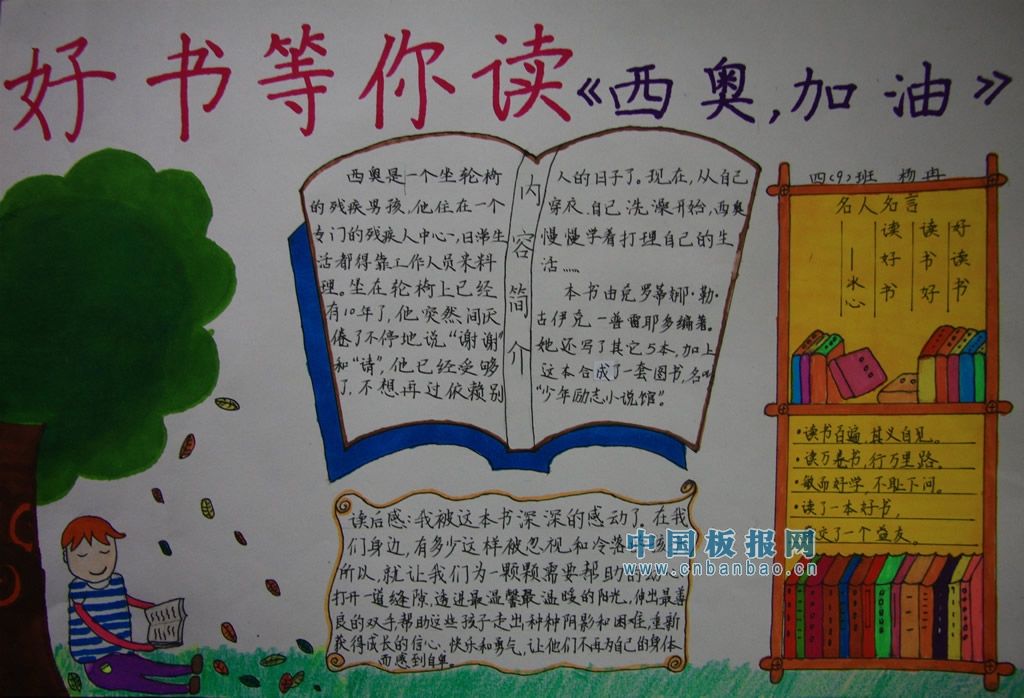 好书等你读《西奥,加油》
西奥是一个坐轮椅
的残疾男孩,他住在一个
专门的残疾人中心,日常生
活都得靠工作人员来料
理。坐在轮椅上已经
有10年了,他突然间厌
倦了不停地说“谢谢”
和“请”,他已经受够
了,不想再过依赖别
内容简介
人的日子了。现在,从自己
穿衣、自己洗澡开始,西奥
慢慢学着打理自己的生
活……
本书由克罗蒂娜·勒·
古伊克-普雷耶多编著。
她还写了其它5本,加上
这本合成了一套图书,名叫
“少年励志小说馆”。
四(9)班 杨冉
名人名言
好读书
读书好
读好书
——冰心
·读书百遍,其义自见。
·读万卷书,行万里路。
·敏而好学,不耻下问。
·读了一本好书,
交了一个益友。
读后感:我被这本书深深的感动了。在我
们身边,有多少这样被忽视和冷落
所以,就让我们为一颗颗需要帮助的
打开一道缝隙,透进最温馨最温暖的阳光。伸出最善
良的双手帮助这些孩子走出种种阴影和困难,重新
获得成长的信心、快乐和勇气,让他们不再为自己的身体
而感到自卑。
中国板报网
www.cnbanbao.cn